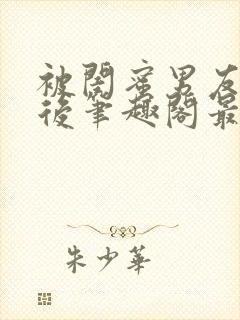 被闺蜜男友
后笔趣阁最
朱少华